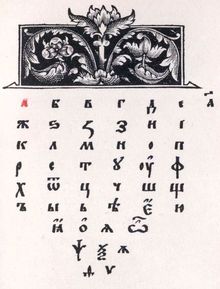 а б в г д є а҃
ж ѕ з и і
к л м н о п
р с т ꙋ оу ф
х ѿ ц ч ш щ
ъ ы ь ѣ ю
ꙗ ѻ ѧ
ѱ ѯ
ѵ